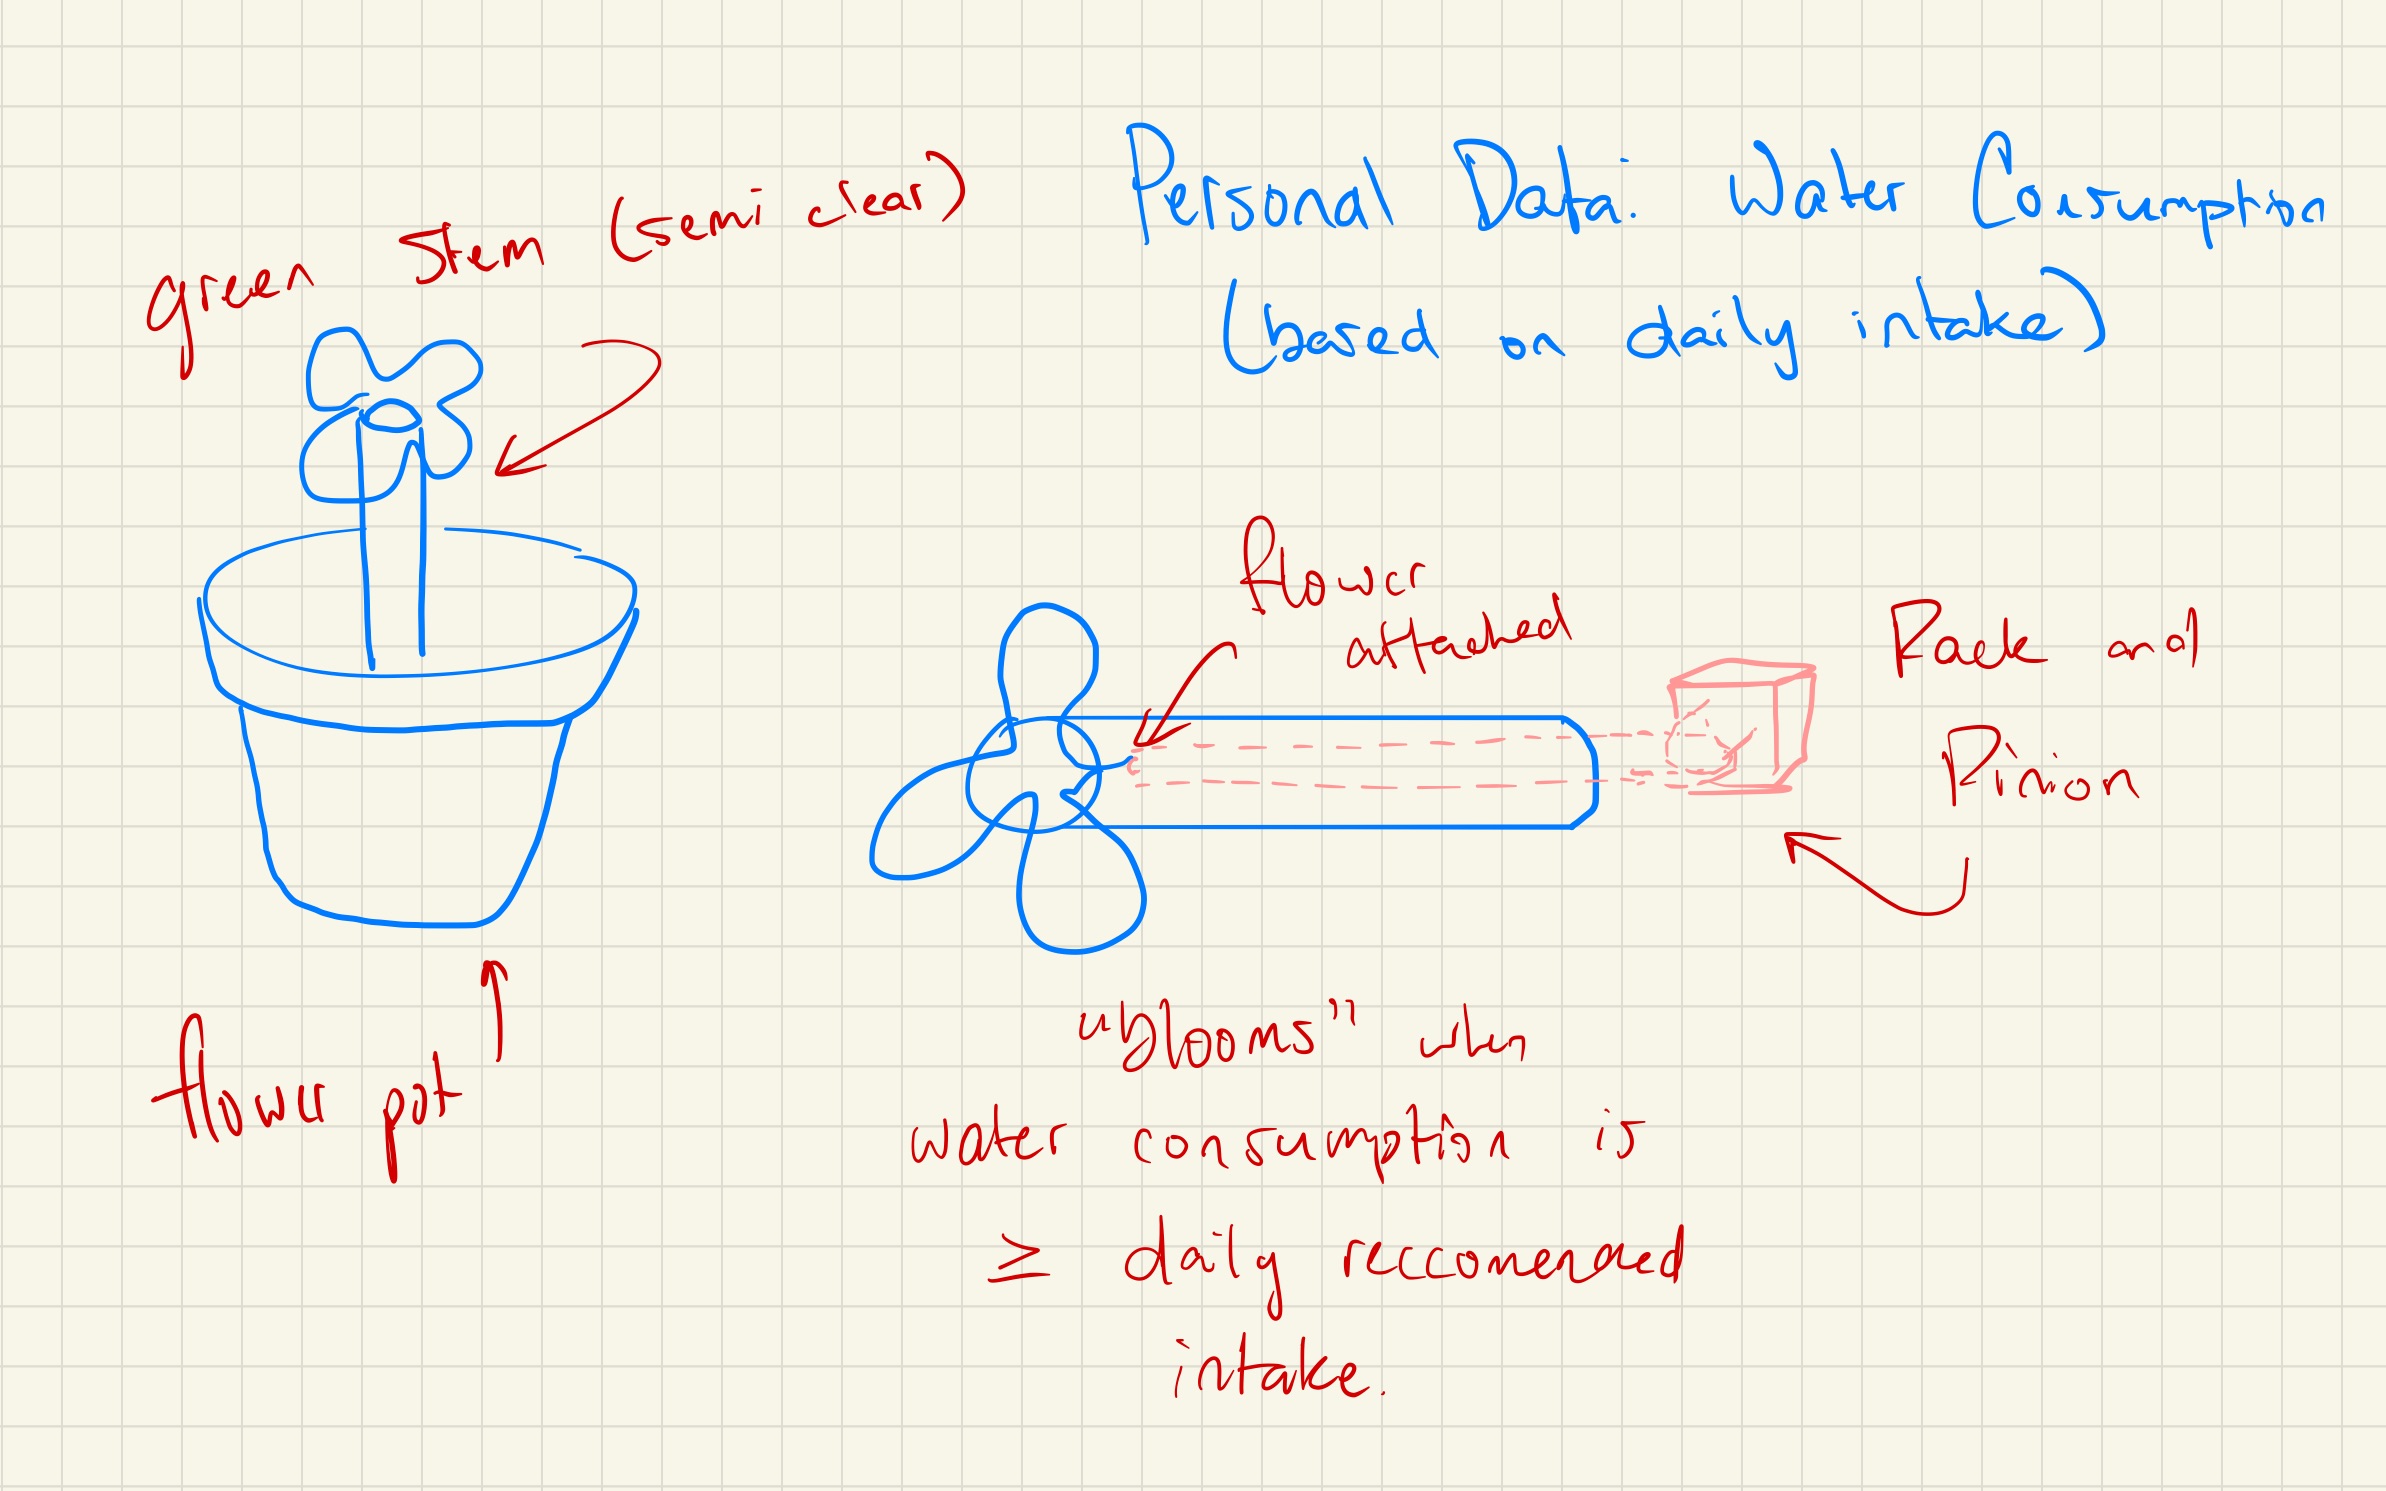 Personal Data: Water Consumption
(based on daily intake)
green stem (semi clear)
flower
attached
Rack and
Pinion
flower pot
"blooms" when
water consumption is
≥ daily reccomended
intake.